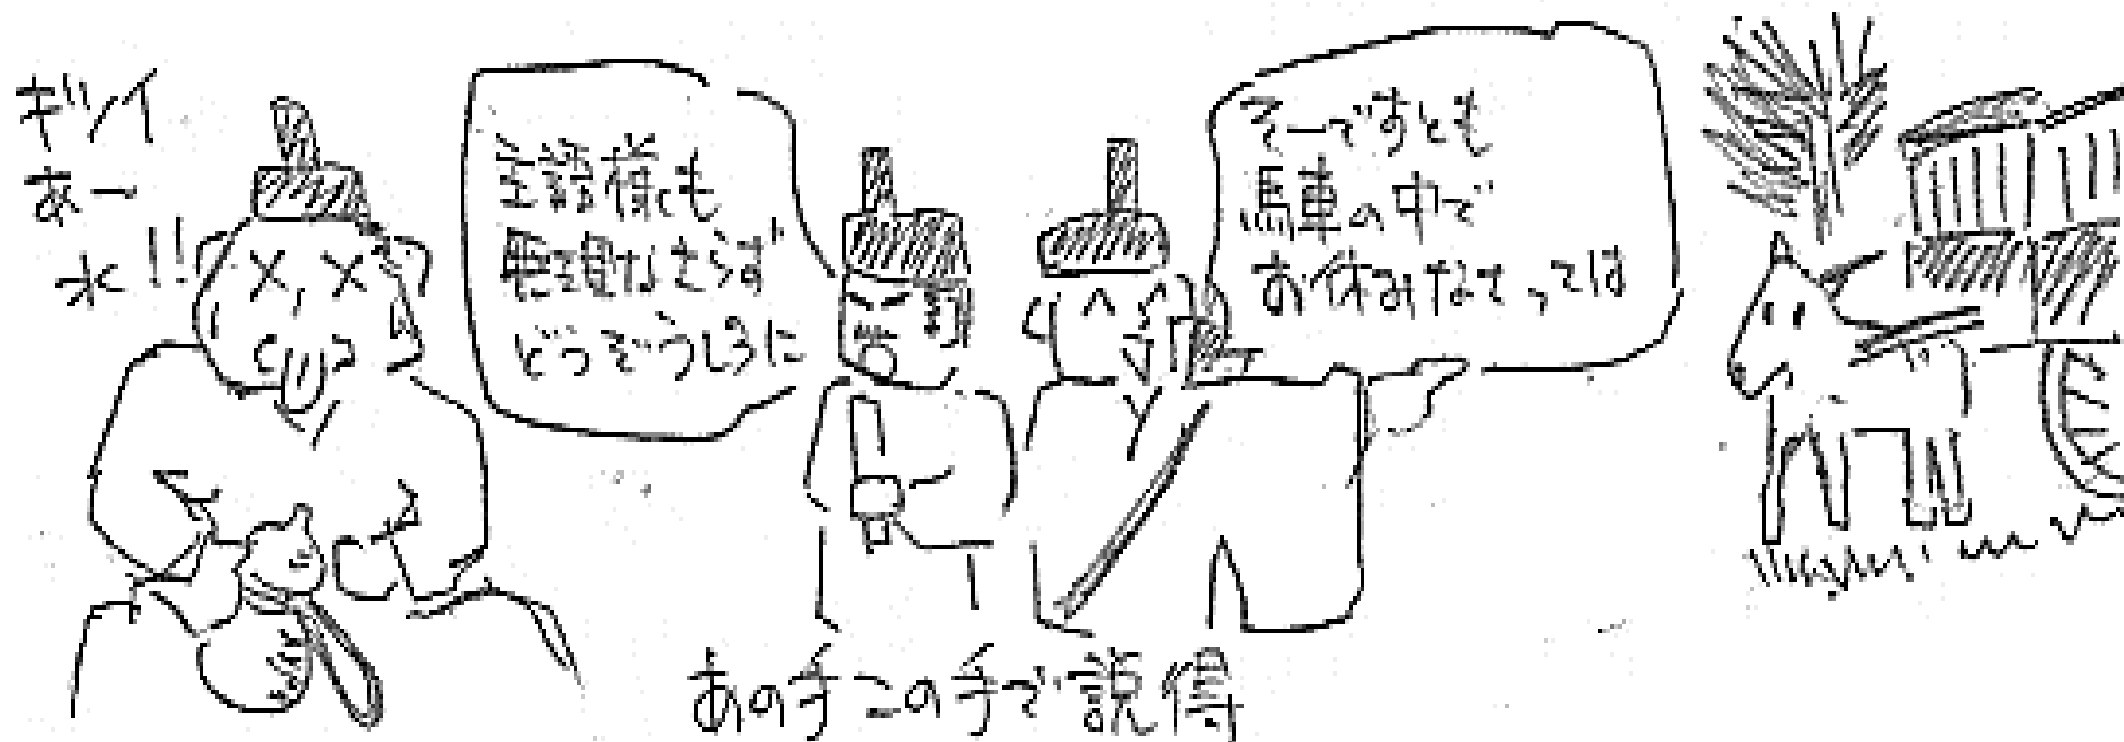 ギツイ
あー
水!!
主設様も
無理なさらず
どうぞうしろに
そーですとも
馬車の中で
お休みなさっては
あの手この手で説得